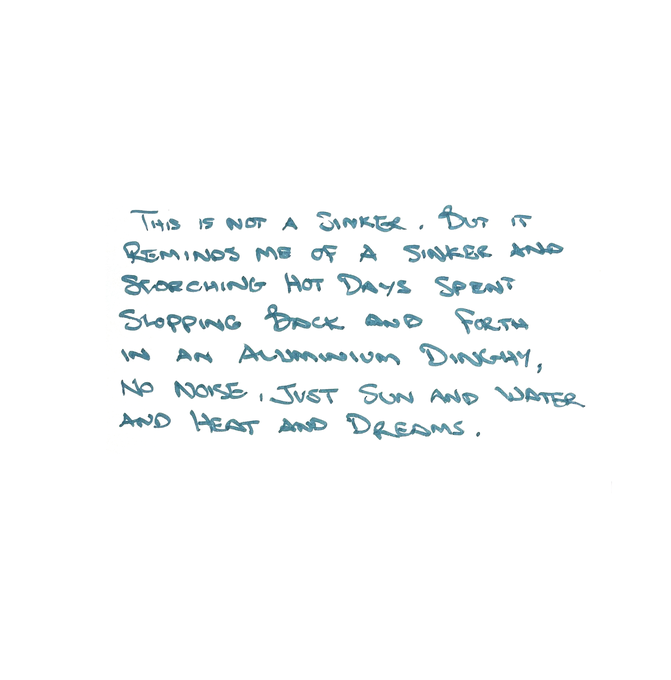 This is not a Sinker. But it
Reminds me of a Sinker and
Scorching Hot Days Spent
Slopping Back and Forth
in an Aluminium Dinghy,
No Noise, Just Sun and Water
and Heat and Dreams.